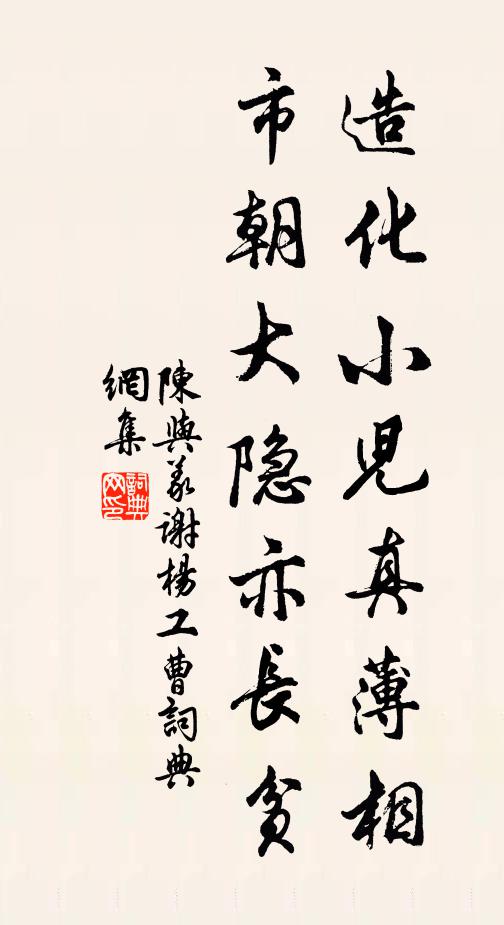 造化小児真薄相
市朝大隐亦長貧
陳與義謝楊工曹詞典
網集
詞典
网印